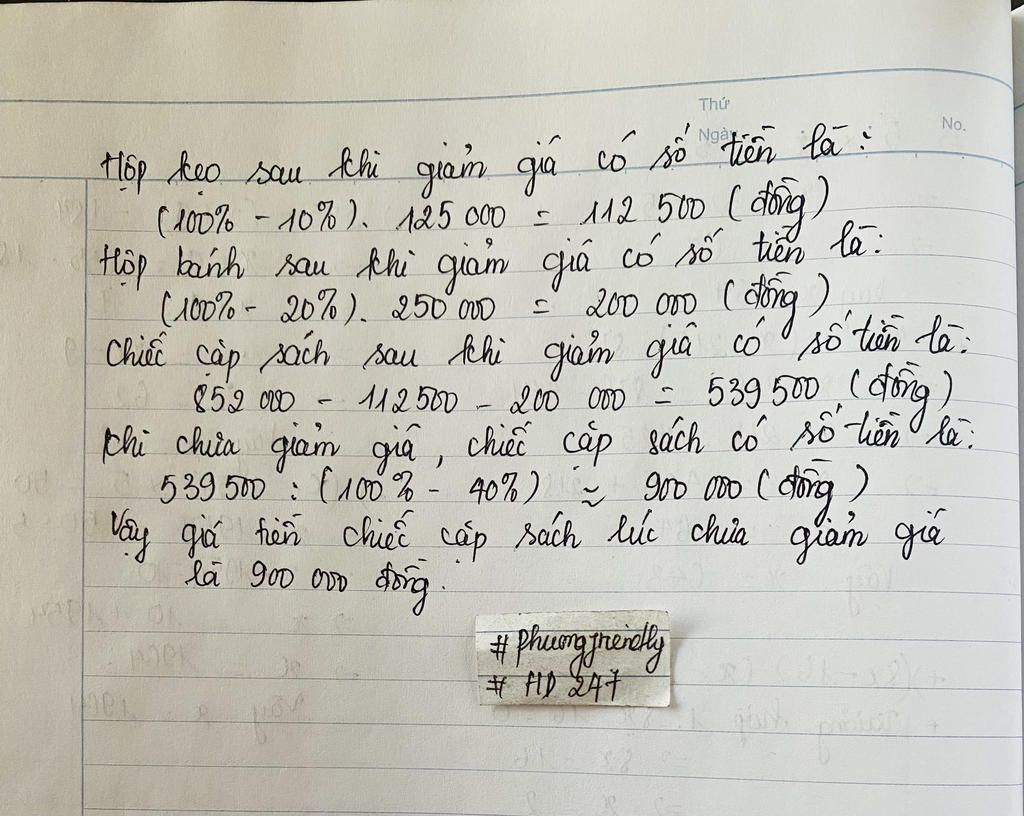 Thứ
Ngày
No.
Hộp kẹo sau khi giảm giá có số tiền là:
(100% - 10%). 125 000 = 112 500 (đồng)
Hộp bánh sau khi giảm giá có số tiền là:
(100% - 20%). 250 000 = 200 000 (đồng)
Chiếc cặp sách sau khi giảm giá có số tiền là:
852 000 - 112 500 - 200 000 = 539 500 (đồng)
Khi chưa giảm giá, chiếc cặp sách có số tiền là:
539 500 : (100% - 40%) ≈ 900 000 (đồng)
Vậy giá tiền chiếc cặp sách lúc chưa giảm giá
là 900 000 đồng.
# phuongfriendly
# HD 247